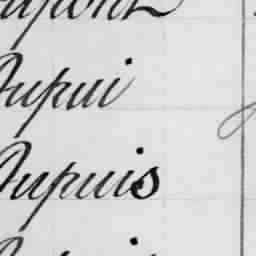 Dupont
Dupui
Dupuis